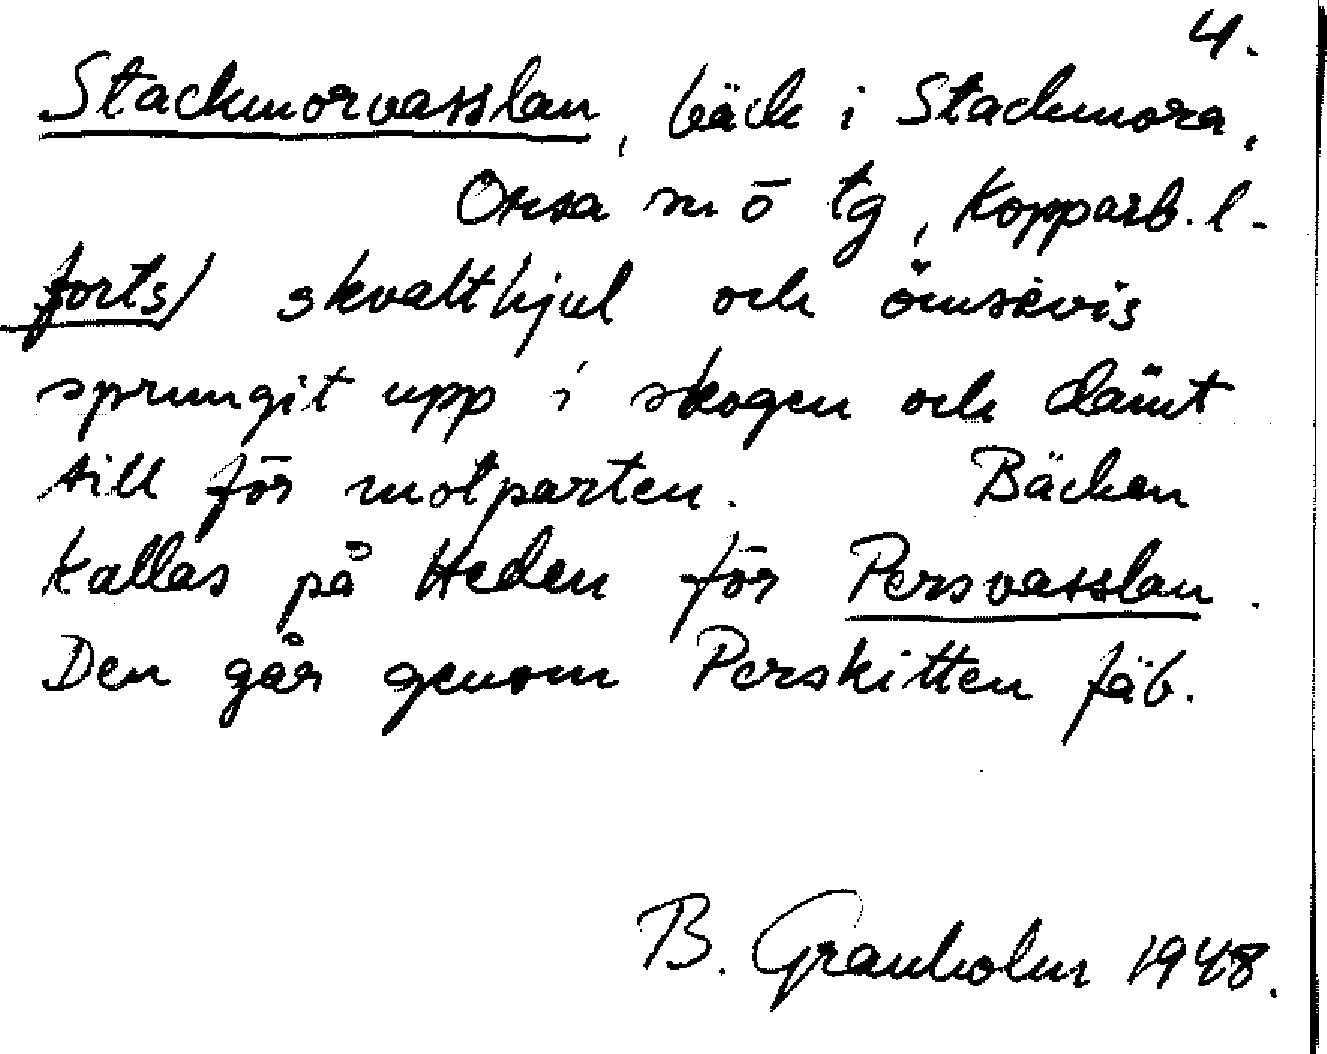 4.
Stackmorvasslan, bäck i Stackmora,
Orsa sn ö tg, Kopparb. l.
forts/ skvalthjul och ömsevis
sprungit upp i skogen och dämt
till för motparten. Bäcken
kallas på Heden för Persvasslan.
Den går genom Perskitten fäb.
B. Granholm 1948.